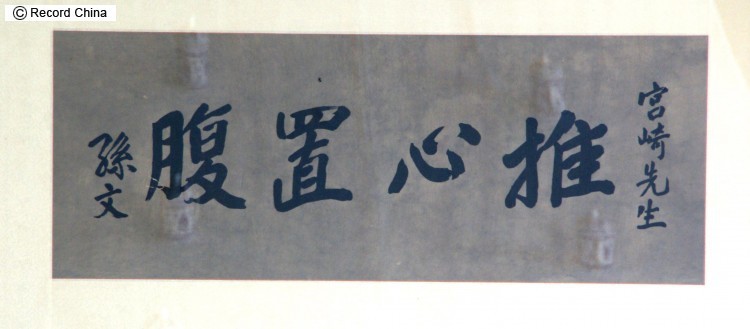 © Record China
宮崎先生
推心置腹
孫文